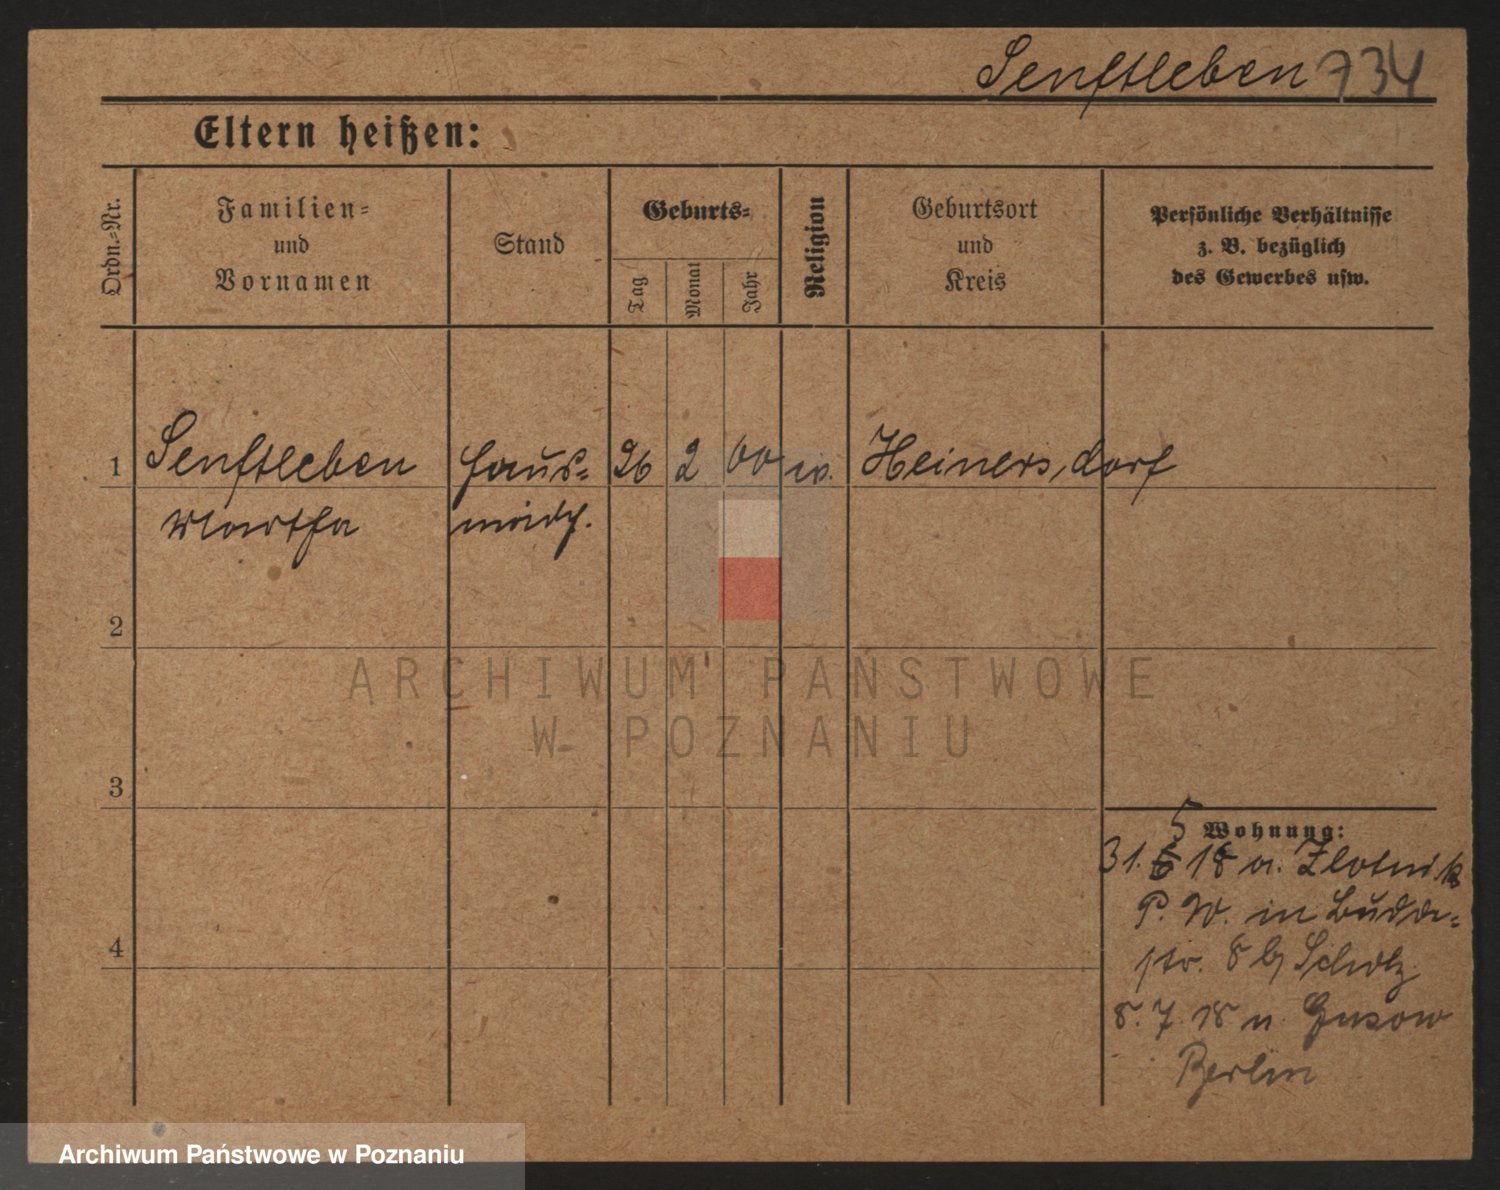 Senftleben 734
Eltern heißen:
Ordn.-Nr.
Familien-
und
Vornamen
Stand
Geburts-
Tag
Monat
Jahr
Religion
Geburtsort
und
Kreis
Persönliche Verhältnisse
z. B. bezüglich
des Gewerbes usw.
1 Senftleben Haus- 26 2 00 ev. Heinersdorf
Martha mädch.
2
ARCHIWUM PAŃSTWOWE
W POZNANIU
3
Wohnung:
5
31. 6 18 a. Zlotnik
P. W. in Budde-
str. 8 b/ Scholz
8. 7. 18 n. Gusow
Berlin
4
Archiwum Państwowe w Poznaniu